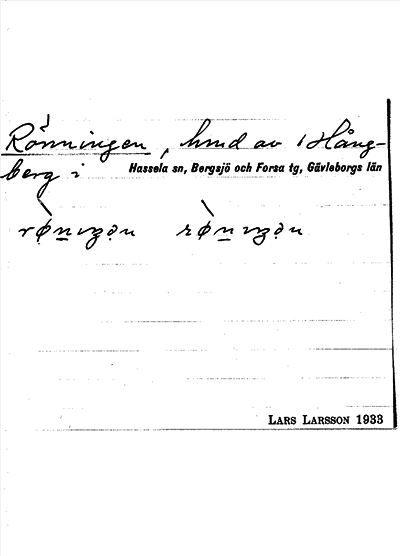 Rönningen, hmd av Hång-
berg i Hassela sn, Bergsjö och Forsa tg, Gävleborgs län
LARS LARSSON 1933